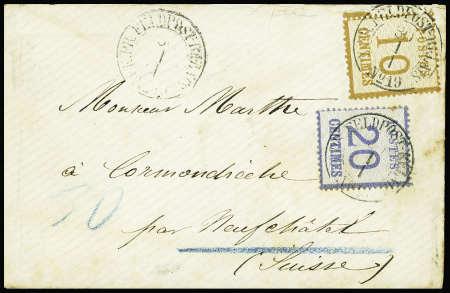 K. PR. FELDPOST
POSTES
10
CENTIMES
Monsieur Marthe
POSTES
20
CENTIMES
à Cormondrèche
30
par Neufchâtel
(Suisse)